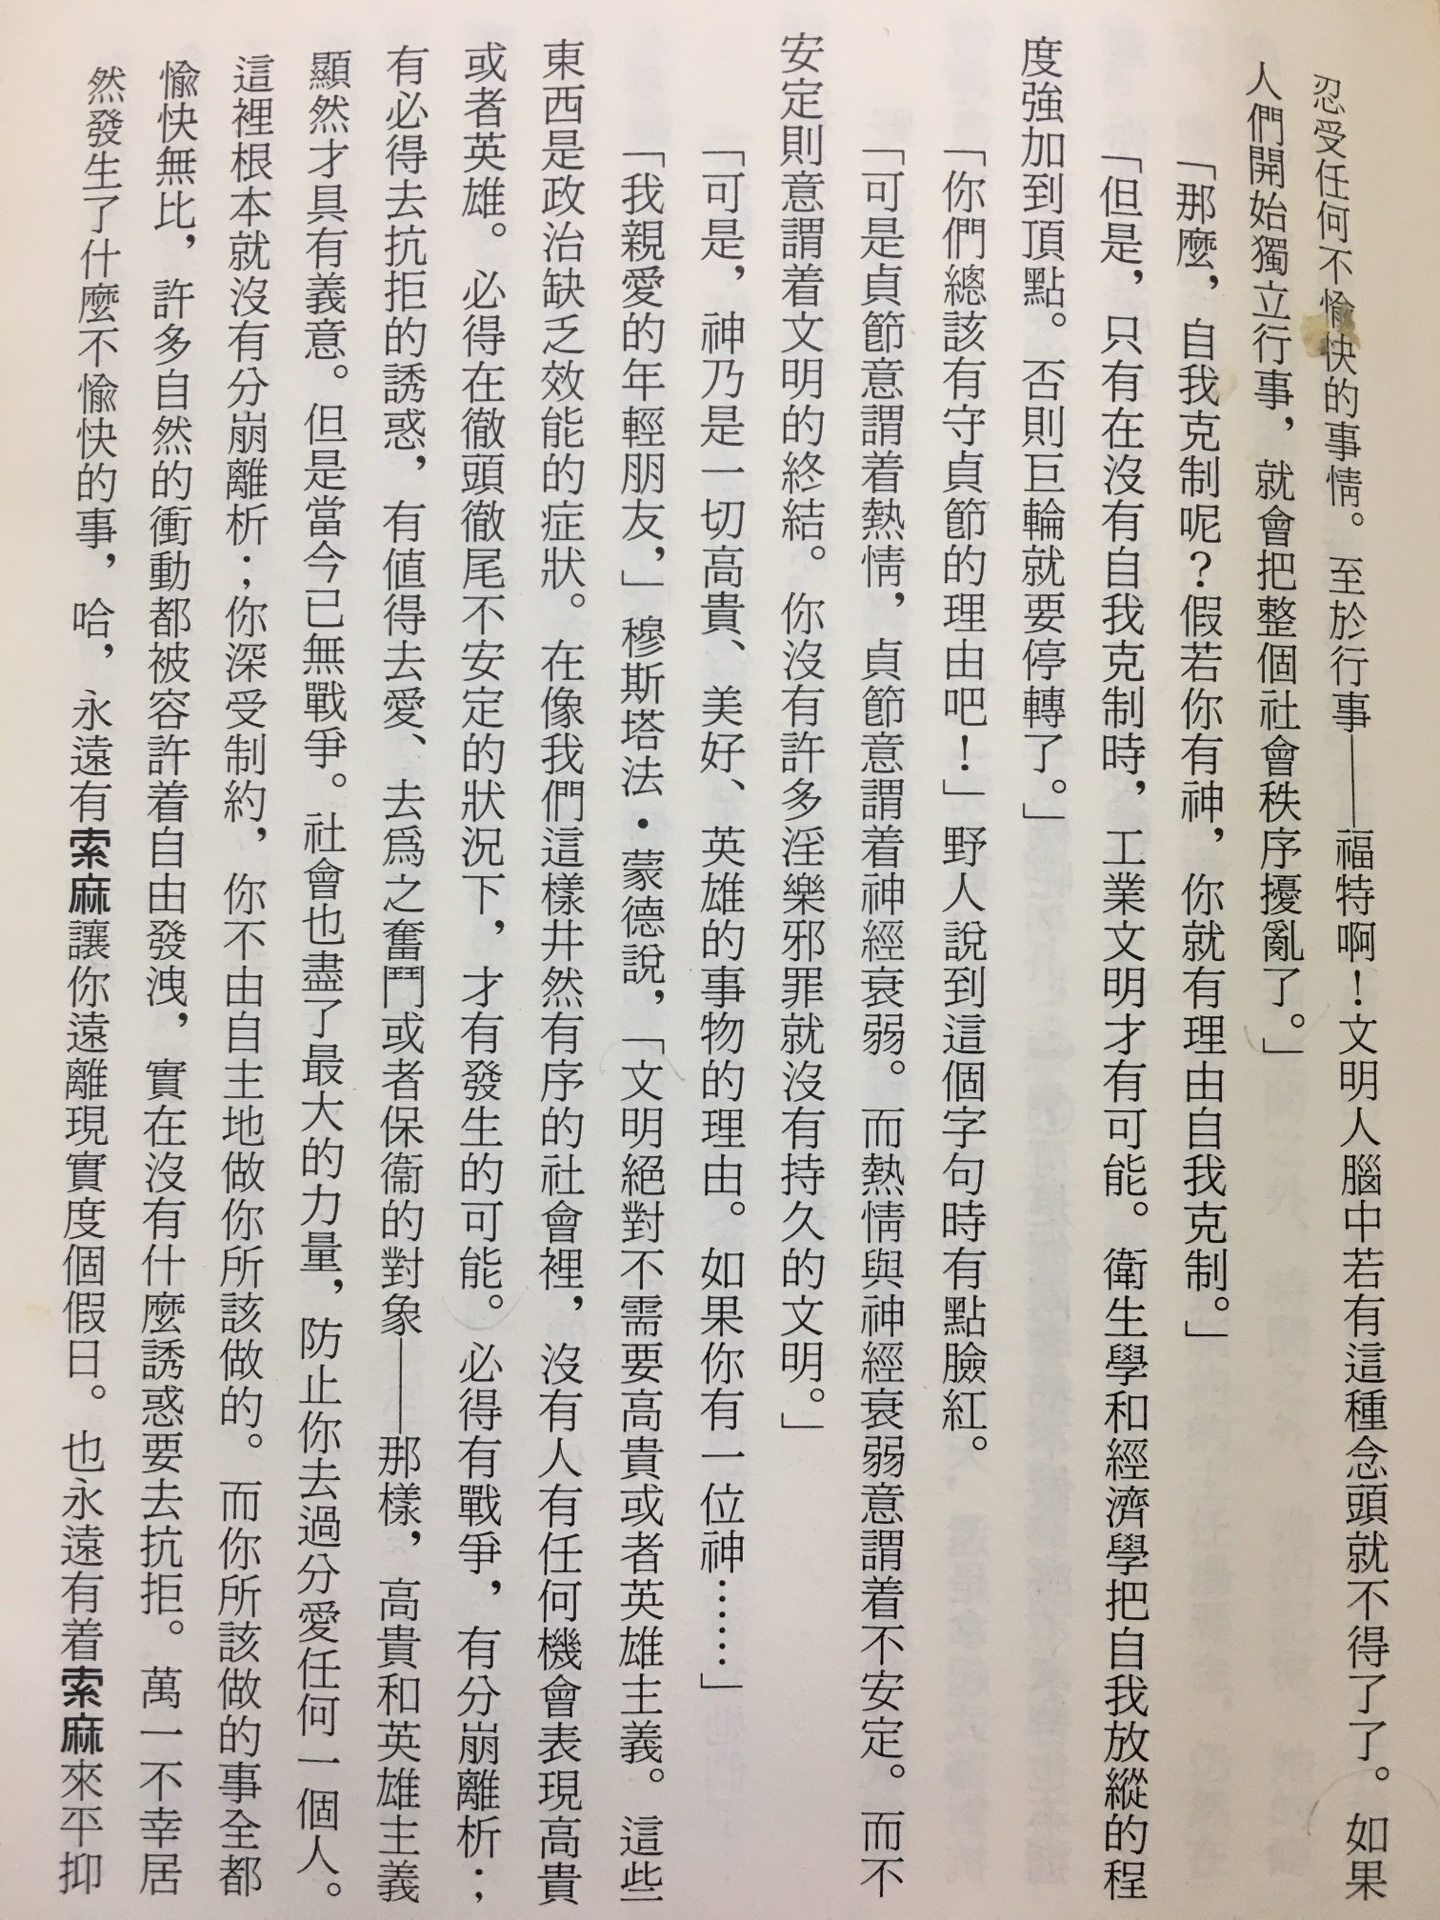 忍受任何不愉快的事情。至於行事——福特啊！文明人腦中若有這種念頭就不得了了。如果
人們開始獨立行事，就會把整個社會秩序擾亂了。」
「那麼，自我克制呢？假若你有神，你就有理由自我克制。」
「但是，只有在沒有自我克制時，工業文明才有可能。衛生學和經濟學把自我放縱的程
度強加到頂點。否則巨輪就要停轉了。」
「你們總該有守貞節的理由吧！」野人說到這個字句時有點臉紅。
「可是貞節意謂着熱情，貞節意謂着神經衰弱。而熱情與神經衰弱意謂着不安定。而不
安定則意謂着文明的終結。你沒有許多淫樂邪罪就沒有持久的文明。」
「可是，神乃是一切高貴、美好、英雄的事物的理由。如果你有一位神……」
「我親愛的年輕朋友，」穆斯塔法•蒙德說，「文明絕對不需要高貴或者英雄主義。這些
東西是政治缺乏效能的症狀。在像我們這樣井然有序的社會裡，沒有人有任何機會表現高貴
或者英雄。必得在徹頭徹尾不安定的狀況下，才有發生的可能。必得有戰爭，有分崩離析；
有必得去抗拒的誘惑，有值得去愛、去爲之奮鬥或者保衞的對象——那樣，高貴和英雄主義
顯然才具有義意。但是當今已無戰爭。社會也盡了最大的力量，防止你去過分愛任何一個人。
這裡根本就沒有分崩離析；你深受制約，你不由自主地做你所該做的。而你所該做的事全都
愉快無比，許多自然的衝動都被容許着自由發洩，實在沒有什麼誘惑要去抗拒。萬一不幸居
然發生了什麼不愉快的事，哈，永遠有索麻讓你遠離現實度個假日。也永遠有着索麻來平抑